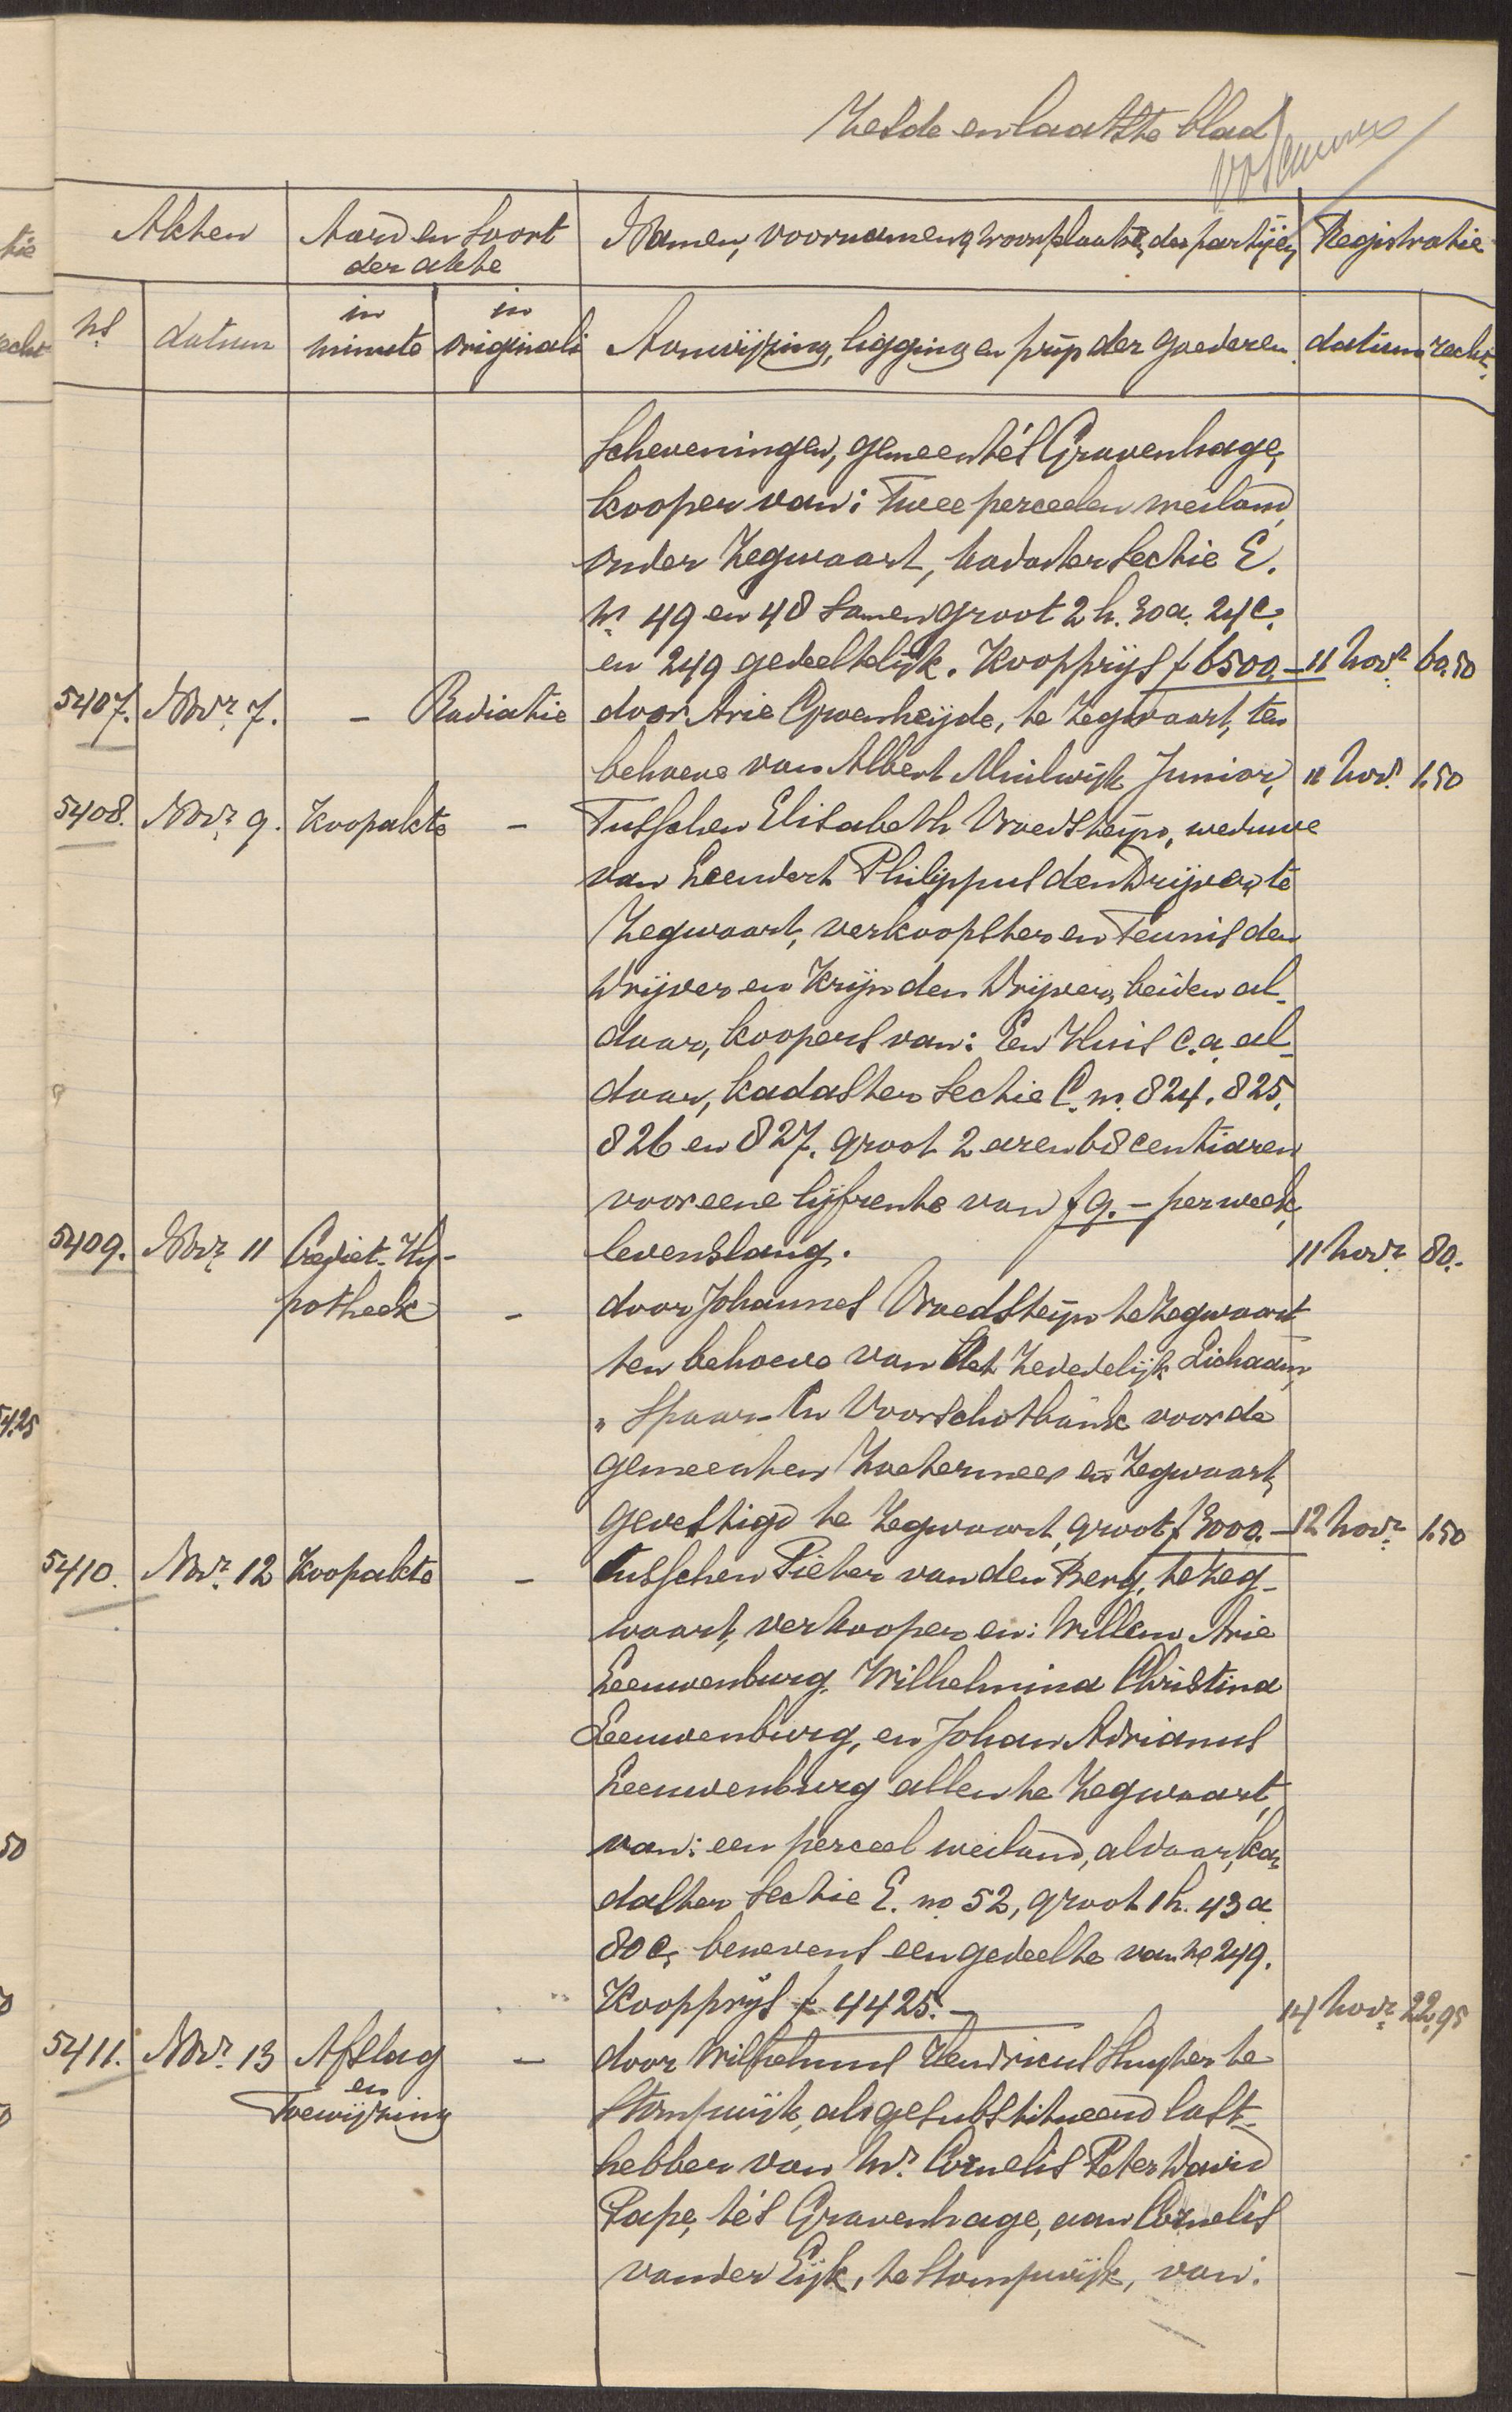 Zesde en laatste blad
Akten
Aard en Soort
der akte
Namen, voornamen, woonplaats, der partijen,
Registratie
no
datum
in
minute
in
originali
Aanwijzing, ligging en prijs der goederen.
datum
recht.
Scheveningen, gemeente 's Gravenhage,
kooper van: Twee perceelen weiland,
onder Zegwaart, kadaster Sectie E.
no. 49 en 48 Samen groot 2 h. 30 a. 24 c.
en 249 gedeeltelijk. Koopprijs f 6500.- 11 Novr. 60.50
5407. Novr. 7. - Radiatie door Arie Groenheijde, te Zegwaart, ten
behoeve van Albert Muilwijk Junior, 11 Novr. 1.50
5408. Novr. 9. Koopakte - Tusschen Elisabeth Vroedsteijn, weduwe
van Leendert Philippus den Drijver, te
Zegwaart, verkoopster en Teunis den
Drijver en Krijn den Drijver, beiden al-
daar, koopers van: Een Huis c.a. al-
daar, kadaster Sectie C. no. 824. 825.
826 en 827. groot 2 aren 68 centiaren
voor eene lijfrente van f 9.- per week,
5409. Novr. 11 Crediet-Hy- levenslang. 11 Novr. 80.-
potheek - door Johannes Vroedsteijn te Zegwaart
ten behoeve van Het Zedelijk Lichaam,
„ Spaar- En Voorschotbank voor de
gemeenten Zoetermeer en Zegwaart,
gevestigd te Zegwaart, groot f 3000.- 12 Novr. 1.50
5410. Novr. 12 Koopakte - tusschen Pieter van den Berg, te Zeg-
waart, verkooper en: Willem Arie
Leeuwenburg. Wilhelmina Christina
Leeuwenburg, en Johan Adrianus
Leeuwenburg allen te Zegwaart,
van: een perceel weiland, aldaar, ka-
daster Sectie E. no. 52, groot 1 h. 43 a.
80 c, benevens een gedeelte van no 249.
Koopprijs f 4425.- 14 Novr. 22.95
5411. Novr. 13 Afslag
en
Toewijzing - door Wilhelmus Hendricus Sluyter te
Stompwijk, als gesubstitueerd last-
hebber van Mr. Cornelis Peter David
Pape, te 's Gravenhage, aan Cornelis
van der Eijk, te Stompwijk, van: